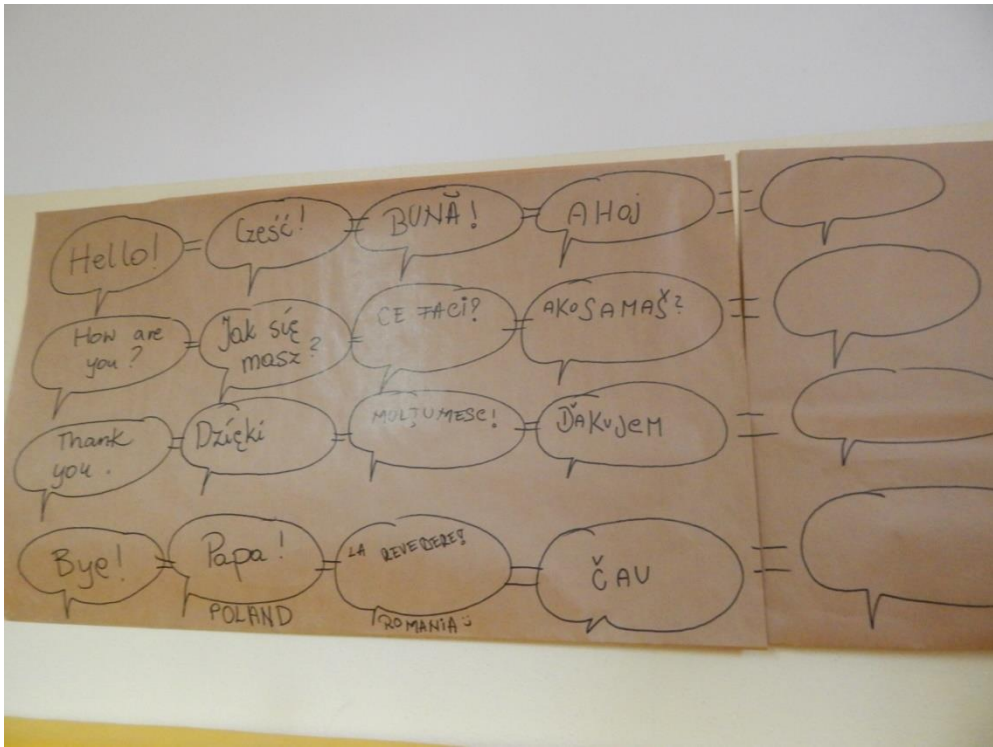 Hello!
Cześć!
BUNĂ!
AHOJ
How are
you?
Jak się
masz?
CE FACI?
AKO SA MAŠ?
Thank
you.
Dzięki
MULȚUMESC!
ĎAKUJEM
Bye!
Papa!
LA REVEDERE!
ČAU
POLAND
ROMANIA